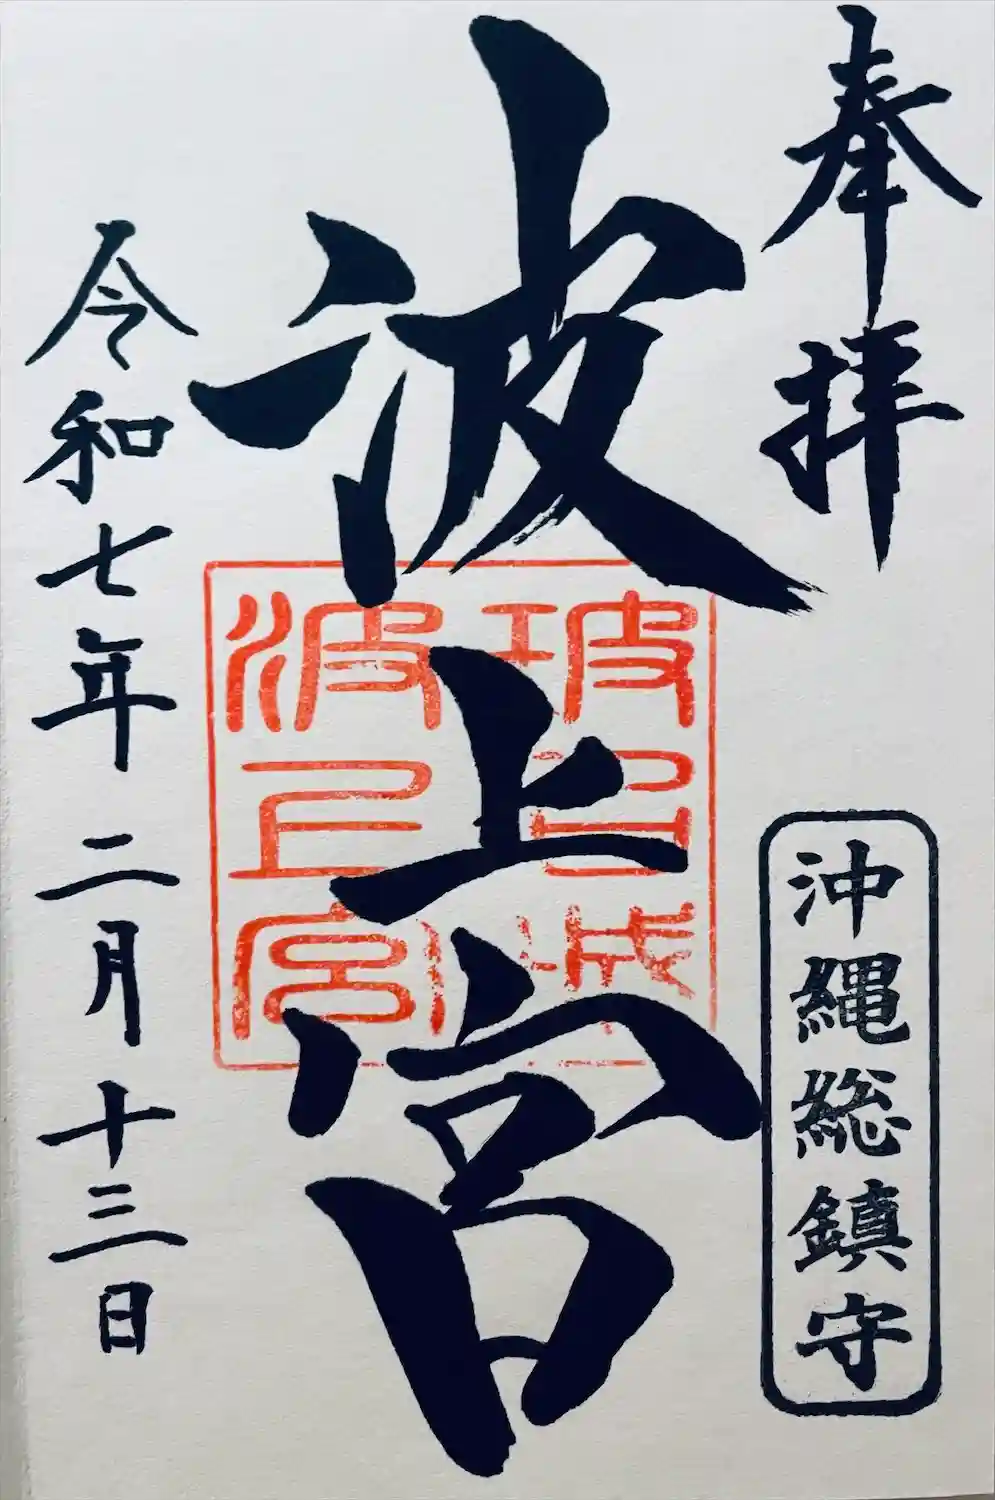 奉拝
沖縄総鎮守
波上宮
波上宮
令和七年二月十三日